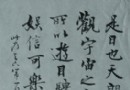 是日也天朗
觀宇宙之
所以遊目騁
娛信可樂